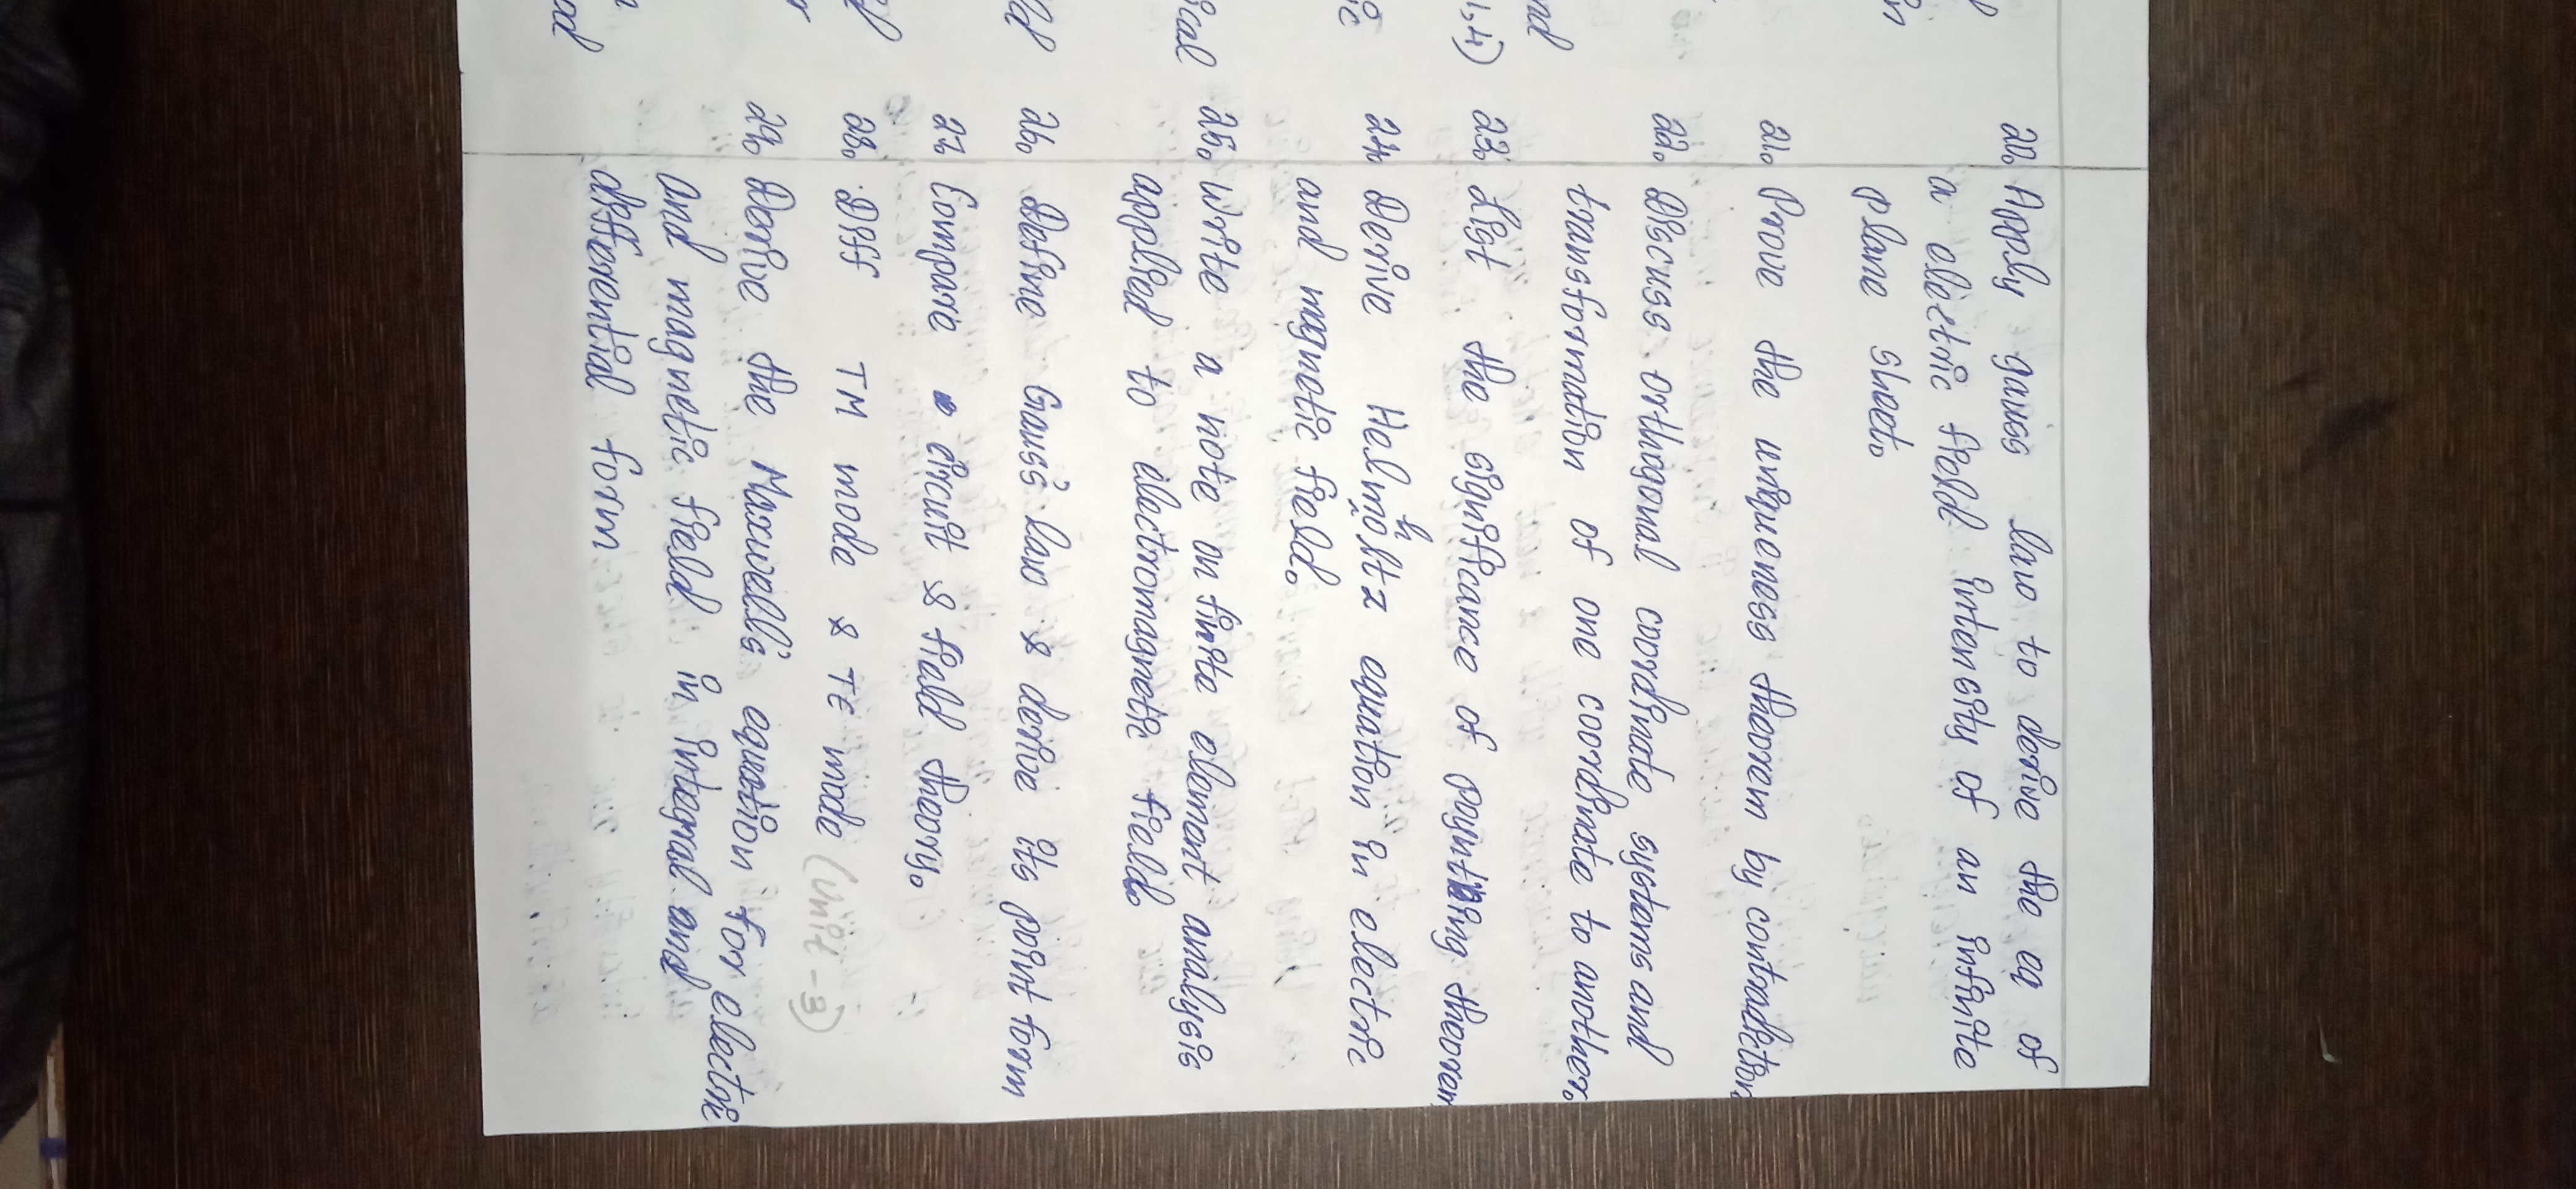 20. Apply gauss law to derive the eq of
a eletric field intensity of an infinite
plane sheet.
21. Prove the uniqueness theorem by contradiction
22. Discuss orthogonal coordinate systems and
transformation of one coordinate to another.
23. List the significance of poynting theorem
24. Derive Helmholtz equation in electric
and magnetic field.
25. Write a note on finite element analysis
applied to electromagnetic field.
26. Define Gauss's law & derive its point form
27. Compare circuit & field theory.
28. Diff TM mode & TE mode (Unit - 3)
29. Derive the Maxwell's equation for electric
and magnetic field in integral and
differential form